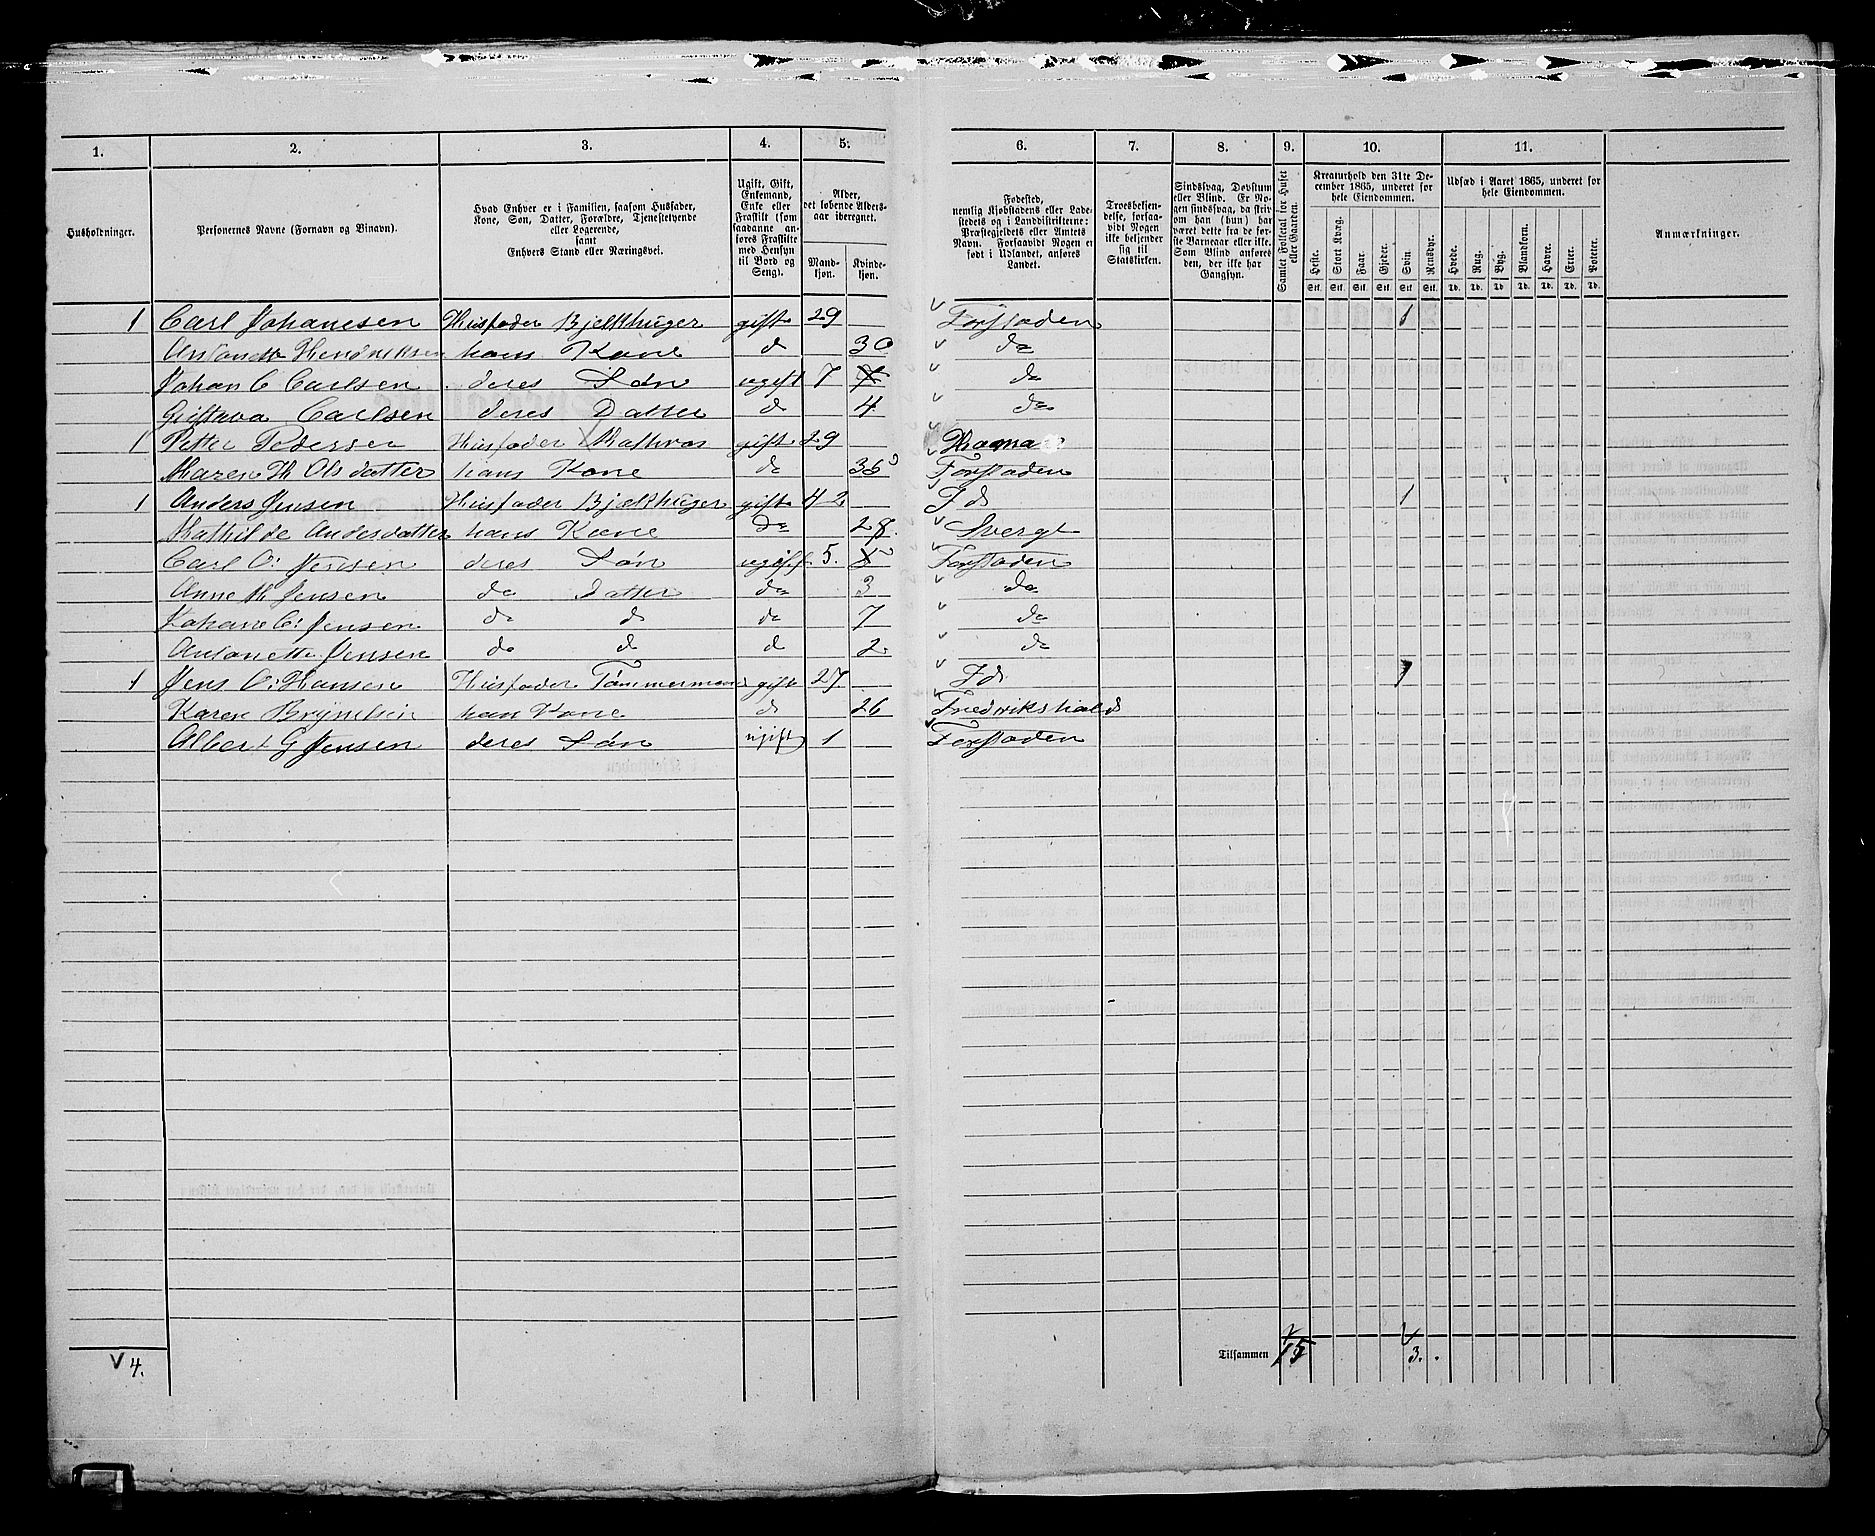 1. 2. 3. 4. 5. 6. 7. 8. 9. 10. 11.
Husholdninger.
Personernes Navne (Fornavn og Binavn).
Hvad Enhver er i Familien, saasom Husfader, Kone, Søn, Datter, Forældre, Tjenestetyende eller Logerende, samt Enhvers Stand eller Næringsvei.
Ugift, Gift, Enkemand, Enke eller Fraskilt (som saadanne anføres Fraskilte med Hensyn til Bord og Seng).
Alder, det løbende Aldersaar iberegnet.
Mandkjøn. Kvindekjøn.
Fødested, nemlig Kjøbstadens eller Ladestedets og i Landdistrikterne: Præstegjeldets eller Amtets Navn. Forsaavidt Nogen er født i Udlandet, anføres Landet.
Troesbekjendelse, forsaavidt Nogen ikke bekjender sig til Statskirken.
Sindssvag, Døvstum eller Blind. Er Nogen sindssvag, da skrives om han (hun) har været dette fra de første Barneaar eller ikke. Som Blind anføres den, der ikke har Gangsyn.
Samlet Folketal for Huset eller Gaarden.
Kreaturhold den 31te December 1865, underet for hele Eiendommen.
Heste. Stort Kvæg. Faar. Gjeder. Svin. Rensdyr.
Stk. Stk. Stk. Stk. Stk. Stk.
Udsæd i Aaret 1865, underet for hele Eiendommen.
Hvede. Rug. Byg. Blandkorn. Havre. Erter. Poteter.
Td. Td. Td. Td. Td. Td. Td.
Anmærkninger.
1 Carl Johanesen Husfader Bjelkhuger gift 29 Forstaden 1
Antonett Hendriksen hans Kone d 30 da
Johan C Carlsen deres Søn ugift 7 da
Gustava Carlsen deres Datter d 4 da
1 Petter Pedersen Husfader gift 29
Maren M Olsdatter hans Kone da Forstaden
1 Anders Jensen Husfader Bjelkhuger gift 42 Id 1
Mathilde Andersdatter hans Kone da Sverge
Carl O: Jensen deres Søn ugift 5. Forstaden
Anne M Jensen da Datter da 3 da
Johane C: Jensen da d da 7 da
Antonette Jensen da d d 2. da
1 Jens O: Hansen Husfader Tømmermand gift 27 Id 1
Karen Brynelsen han Kone d 26 Fredrikshald
Albert G Jensen deres Søn ugift 1 Forstaden
4. Tilsammen 15 3.